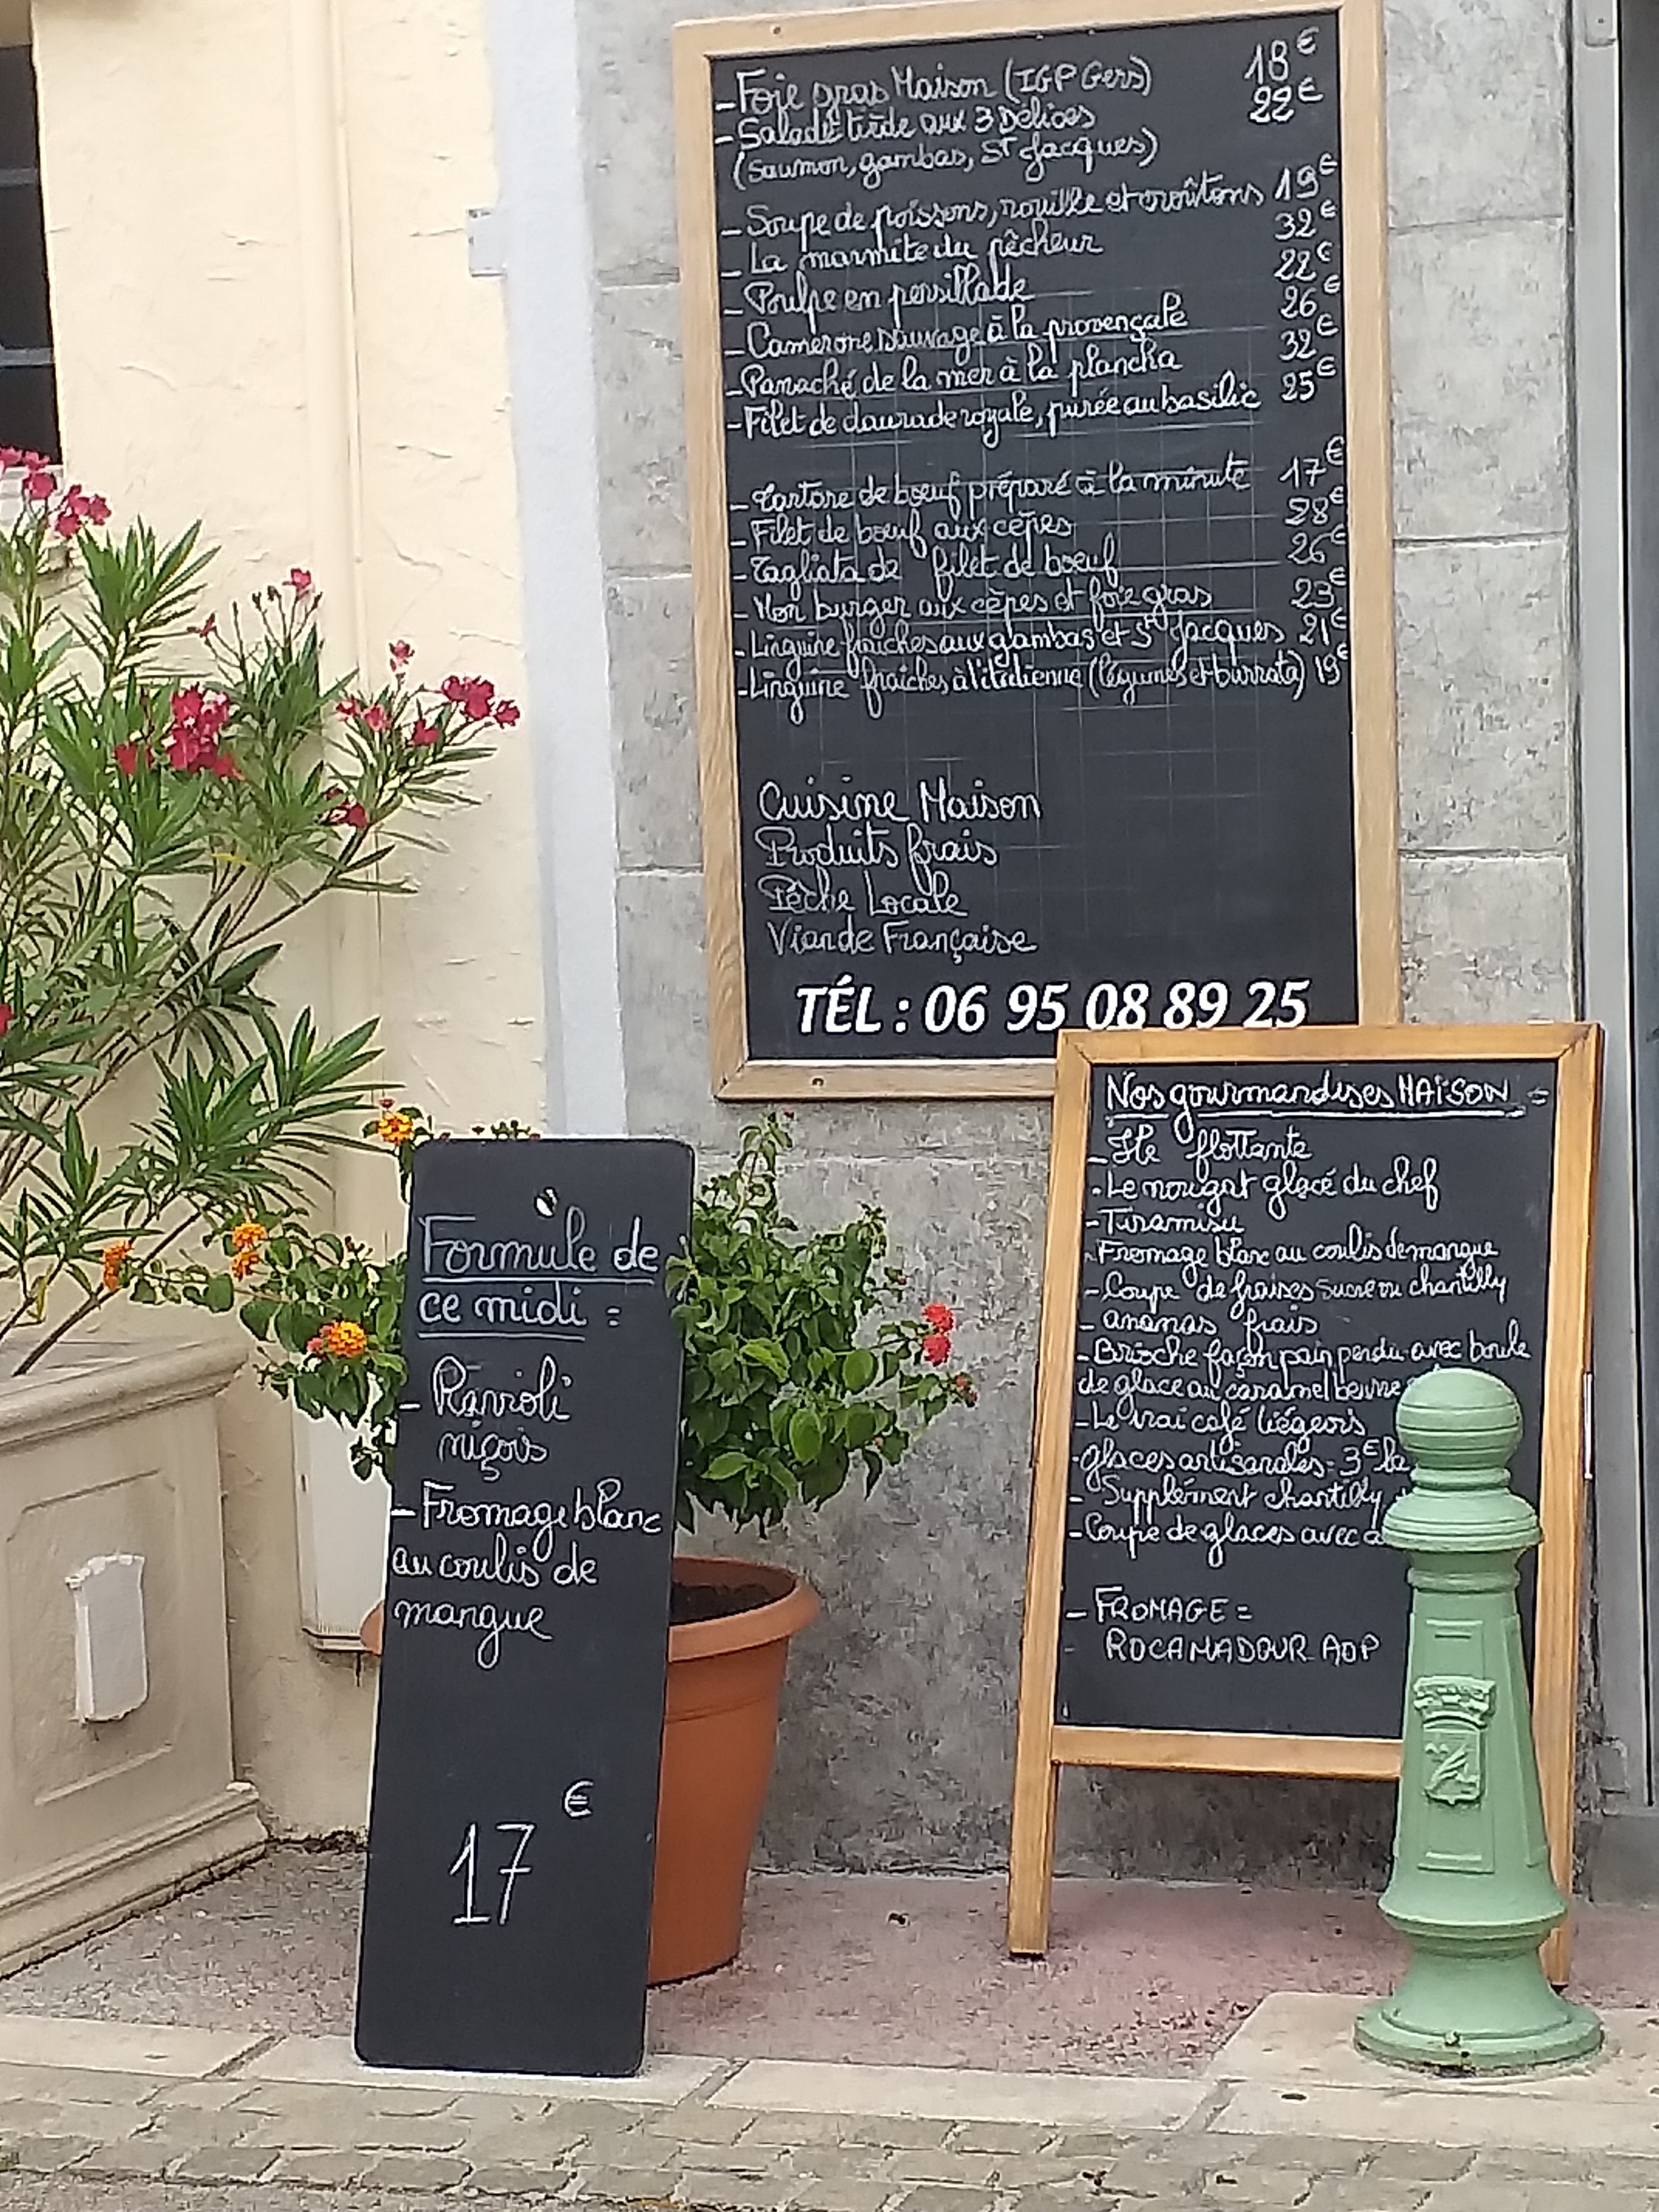 - Foie gras Maison (IGP Gers) 18€
- Salade tiède aux 3 Délices 22€
(Saumon, gambas, St Jacques)
- Soupe de poissons, rouille et croûtons 19€
- La marmite du pêcheur 32€
- Poulpe en persillade 22€
- Camerone sauvage à la provençale 26€
- Panaché de la mer à la plancha 32€
- Filet de daurade royale, purée au basilic 25€
- Tartare de bœuf préparé à la minute 17€
- Filet de bœuf aux cèpes 28€
- Tagliata de filet de bœuf 26€
- Mon burger aux cèpes et foie gras 23€
- Linguine fraiches aux gambas et St Jacques 21€
- Linguine fraiches à l'italienne (légumes et burrata) 19€
Cuisine Maison
Produits frais
Pêche Locale
Viande Française
TÉL : 06 95 08 89 25
Nos gourmandises MAISON =
- Ile flottante
- Le nougat glacé du chef
- Tiramisu
- Fromage blanc au coulis de mangue
- Coupe de fraises sucre ou chantilly
- ananas frais
- Brioche façon pain perdu avec boule
de glace au caramel beurre
- Le vrai café liégeois
- glaces artisanales - 3€ la
- Supplément chantilly
- Coupe de glaces avec
- FROMAGE =
ROCAMADOUR AOP
Formule de
ce midi =
- Ravioli
niçois
- Fromage blanc
au coulis de
mangue
17€